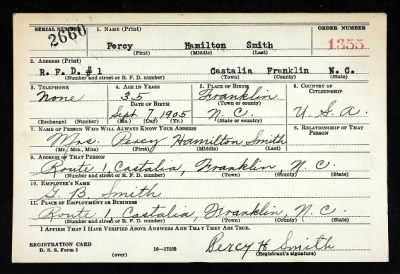 SERIAL NUMBER 1. NAME (Print) ORDER NUMBER
2660 Percy Hamilton Smith 1355
(First) (Middle) (Last)
2. ADDRESS (Print)
R. F. D. # 1 Castalia Franklin N. C.
(Number and street or R. F. D. number) (Town) (County) (State)
3. TELEPHONE 4. AGE IN YEARS 5. PLACE OF BIRTH 6. COUNTRY OF CITIZENSHIP
None 35 Franklin
DATE OF BIRTH (Town or county)
Sept 7 1905 N. C. U. S. A.
(Exchange) (Number) (Mo.) (Day) (Yr.) (State or country)
7. NAME OF PERSON WHO WILL ALWAYS KNOW YOUR ADDRESS 8. RELATIONSHIP OF THAT PERSON
Mrs. Percy Hamilton Smith
(Mr., Mrs., Miss) (First) (Middle) (Last)
9. ADDRESS OF THAT PERSON
Route 1, Castalia, Franklin, N. C.
(Number and street or R. F. D. number) (Town) (County) (State)
10. EMPLOYER'S NAME
B. Smith
11. PLACE OF EMPLOYMENT OR BUSINESS
Route 1 Castalia, Franklin, N. C.
(Number and street or R. F. D. number) (Town) (County) (State)
I AFFIRM THAT I HAVE VERIFIED ABOVE ANSWERS AND THAT THEY ARE TRUE.
REGISTRATION CARD
D. S. S. Form 1 (over) 16—17105 Percy H. Smith
(Registrant's signature)